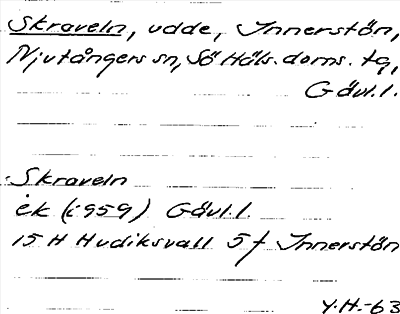 Skraveln, udde, Innerstön,
Njutångers sn, Sö Häls. doms. tg,
Gävl. l.
Skraveln
ek (1959) Gävl. l.
15 H Hudiksvall 5 f Innerstön
Y.H.-63